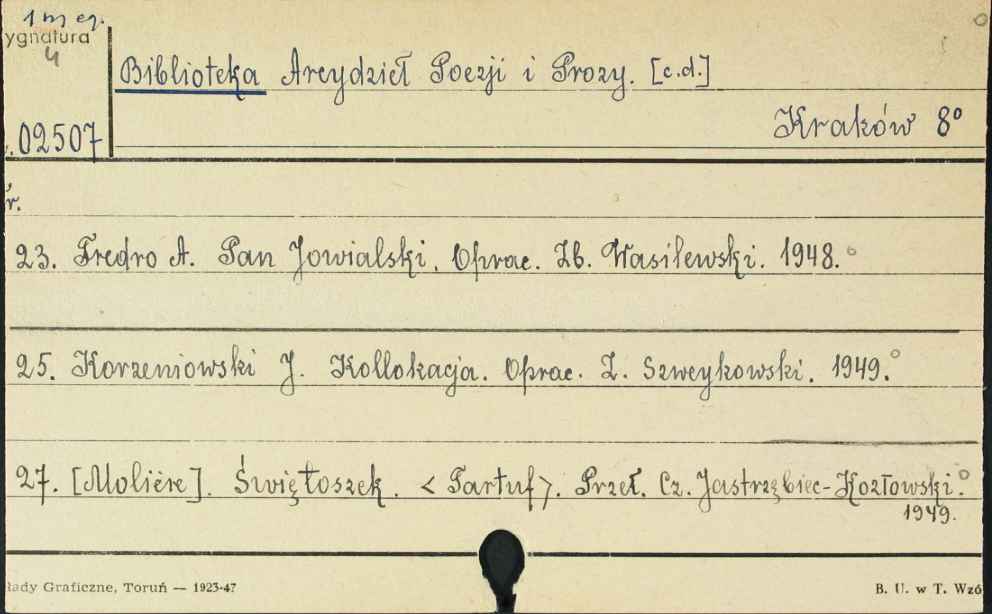 1 m eg.
ygnatura
4
Biblioteka Arcydzieł Poezji i Prozy. [c.d.]
02507
Kraków 8°
r.
23. Fredro A. Pan Jowialski. Oprac. Zb. Wasilewski. 1948.°
25. Korzeniowski J. Kollokacja. Oprac. Z. Szweykowski. 1949.°
27. [Molière]. Świętoszek. <Tartuf>. Przeł. Cz. Jastrzębiec-Kozłowski.°
1949.
łady Graficzne, Toruń — 1923-47
B. U. w T. Wzó